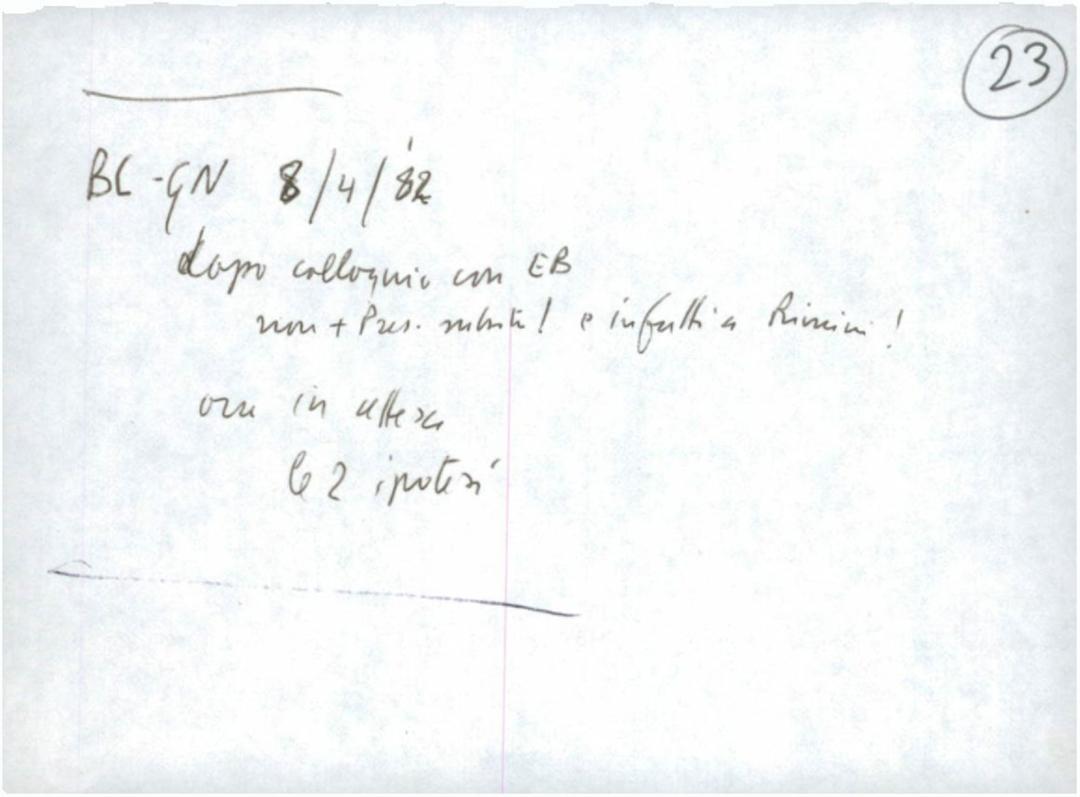 23
BC-GN 8/4/'82
dopo colloquio con EB
non + Pres. subito! e infatti a Rimini!
ora in attesa
le 2 ipotesi